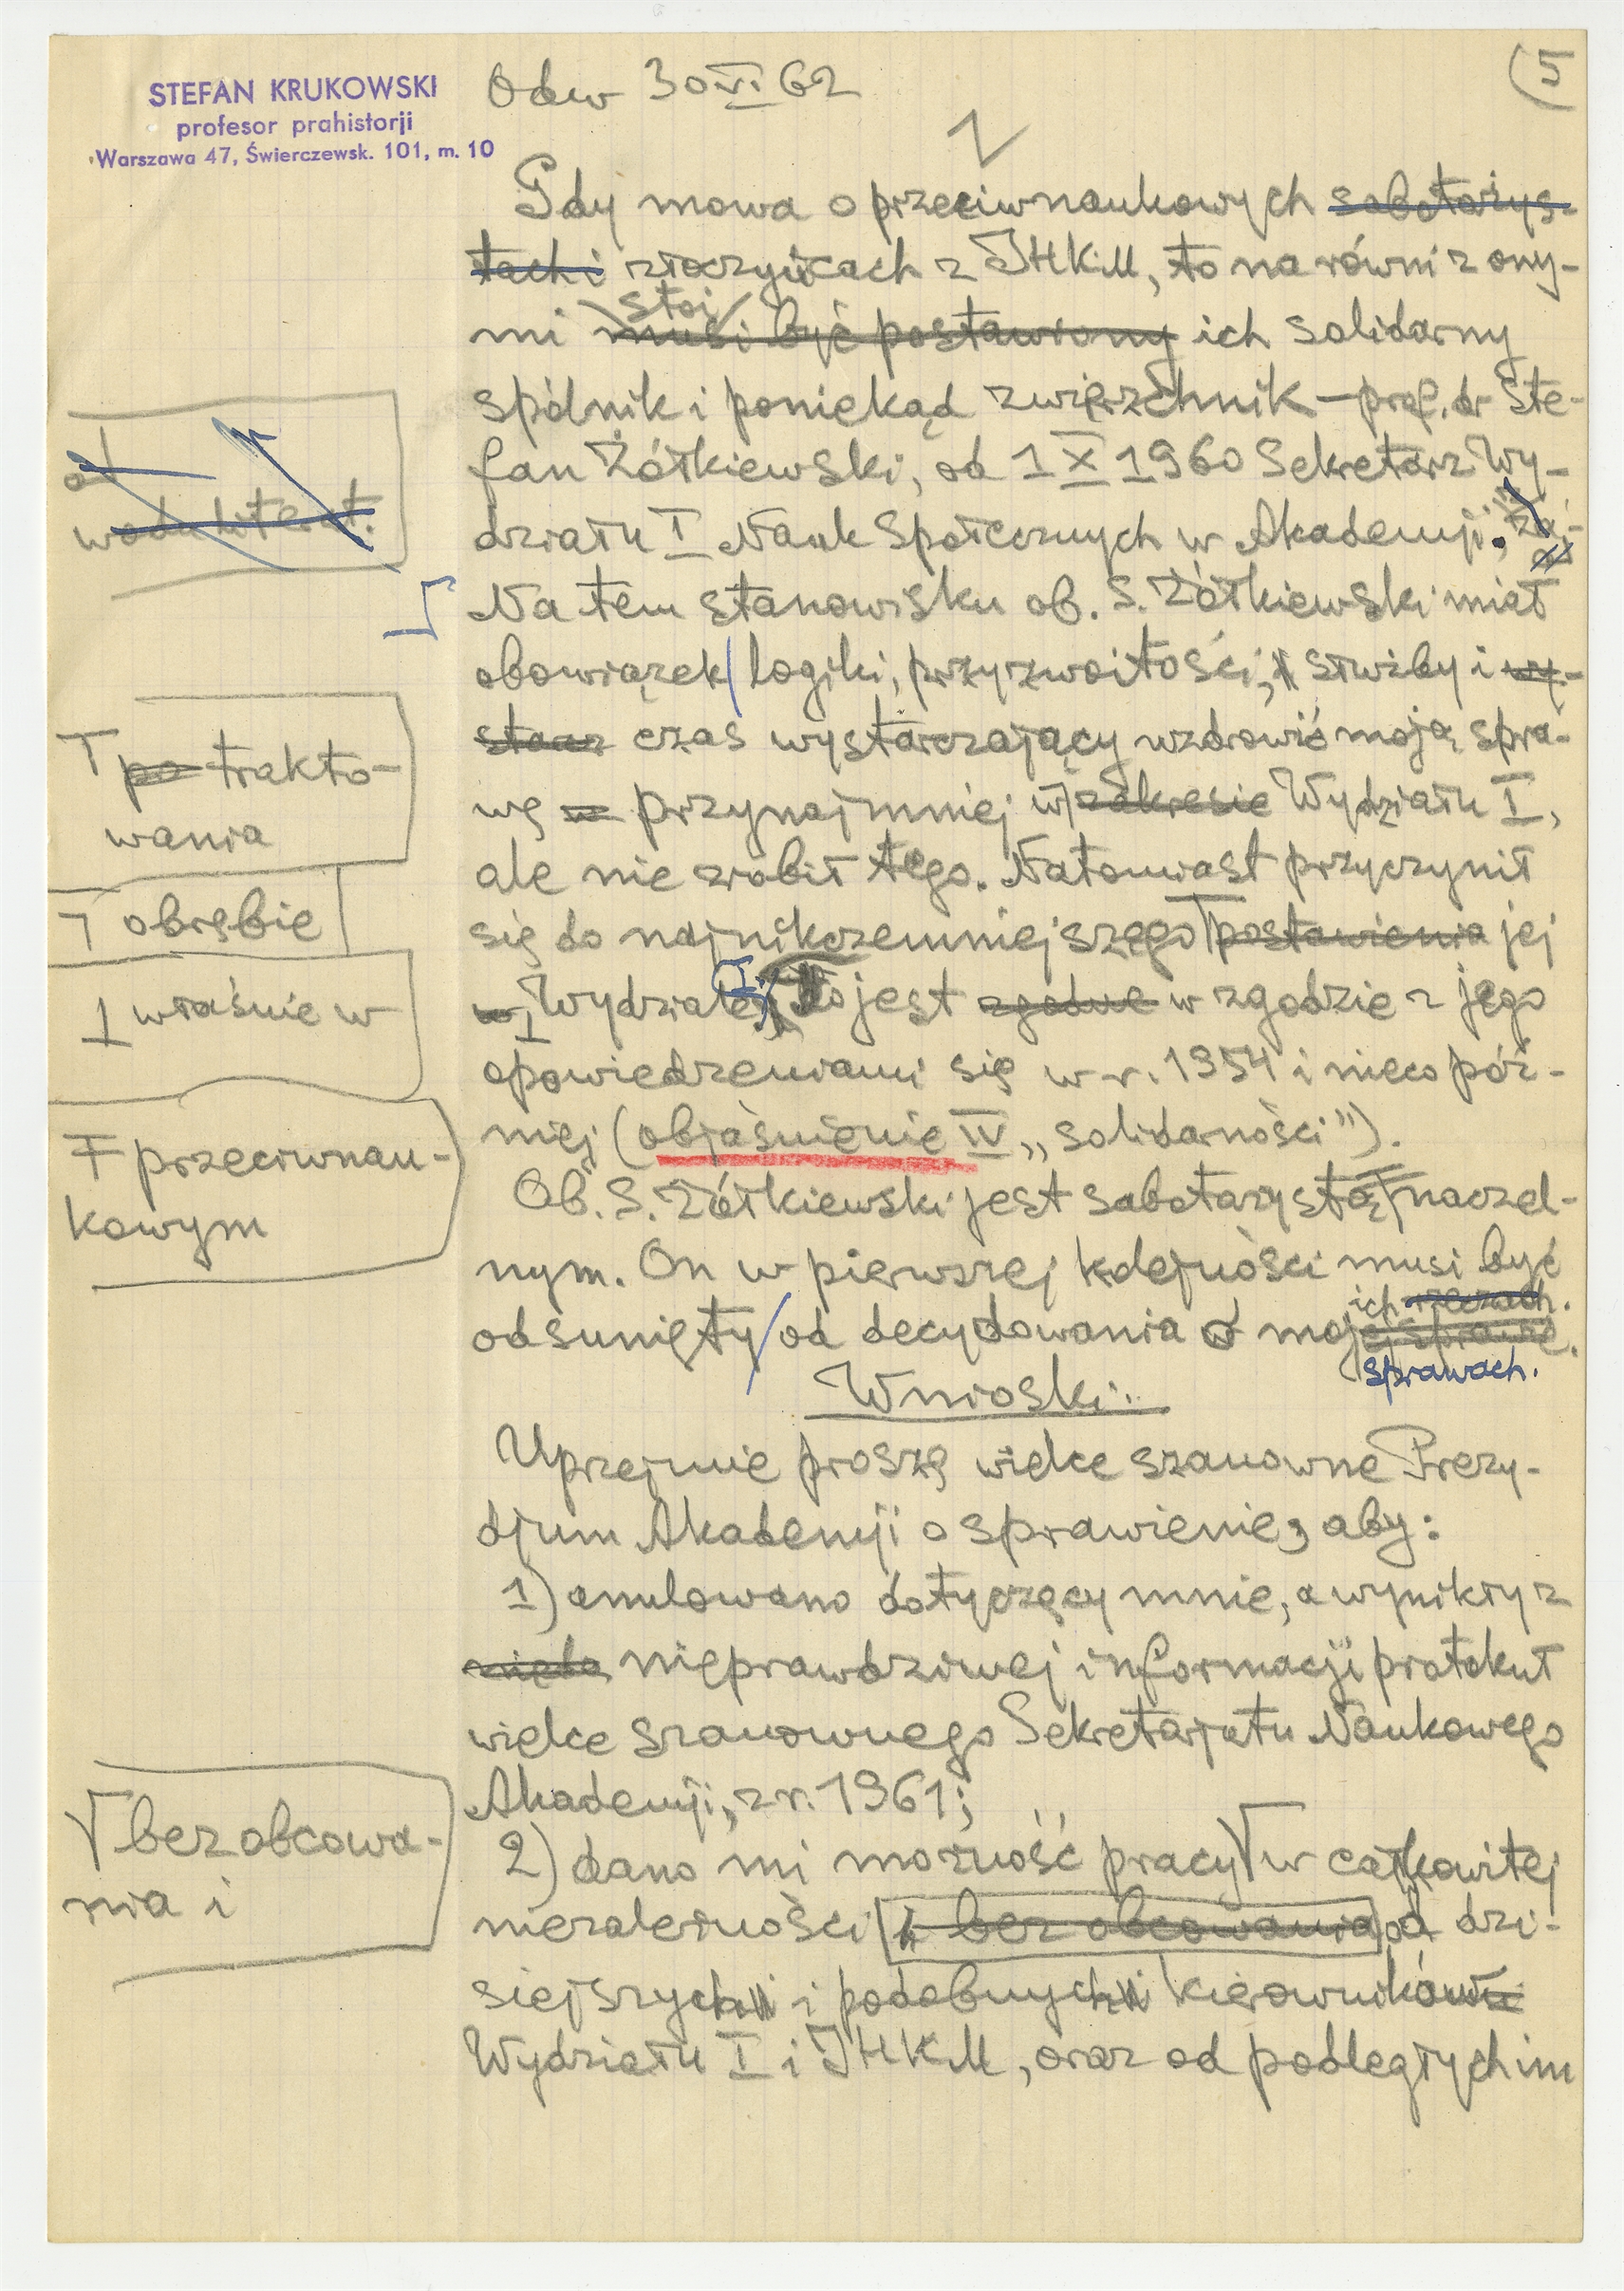 STEFAN KRUKOWSKI
profesor prahistorji
Warszawa 47, Świerczewsk. 101, m. 10
Odw 30 VI 62
5
Gdy mowa o przeciwnaukowych sabotażys-
tach i złoczyńcach z IHKM, to na równi z ony-
stoi
mi musi być postawiony ich solidarny
spólnik i poniekąd zwierzchnik – prof. dr Ste-
fan Żółkiewski, od 1 X 1960 Sekretarz Wy-
działu I Nauk Społecznych w Akademji.
Na tem stanowisku ob. S. Żółkiewski miał
obowiązek logiki, przyzwoitości, służby i wy-
starcz czas wystarczający uzdrowić moją spra-
wę w przynajmniej w zakresie Wydziału I,
ale nie zrobił tego. Natomiast przyczynił
się do najnikczemniejszego postawienia jej
w Wydziale I. To jest zgodne w zgodzie z jego
opowiedzeniami się w r. 1954 i nieco póź-
niej (objaśnienie IV „solidarności").
Ob. S. Żółkiewski jest sabotażystą naczel-
nym. On w pierwszej kolejności musi być
ich rzeczach.
odsunięty od decydowania w mojej sprawie.
sprawach.
Wnioski:
Uprzejmie proszę wielce szanowne Prezy-
djum Akademji o sprawienie, aby:
1) anulowano dotyczący mnie, a wynikły z
nieprawdziwej informacji protokuł
wielce szanownego Sekretarjatu Naukowego
Akademji, z r. 1961;
2) dano mi możność pracy w całkowitej
niezależności i bez obcowania od dzi-
siejszych i podobnych kierowników
Wydziału I i IHKM, oraz od podległych im
od
po trakto-
wania
obrębie
właśnie w
przeciwnau-
kowym
bez obcowa-
nia i